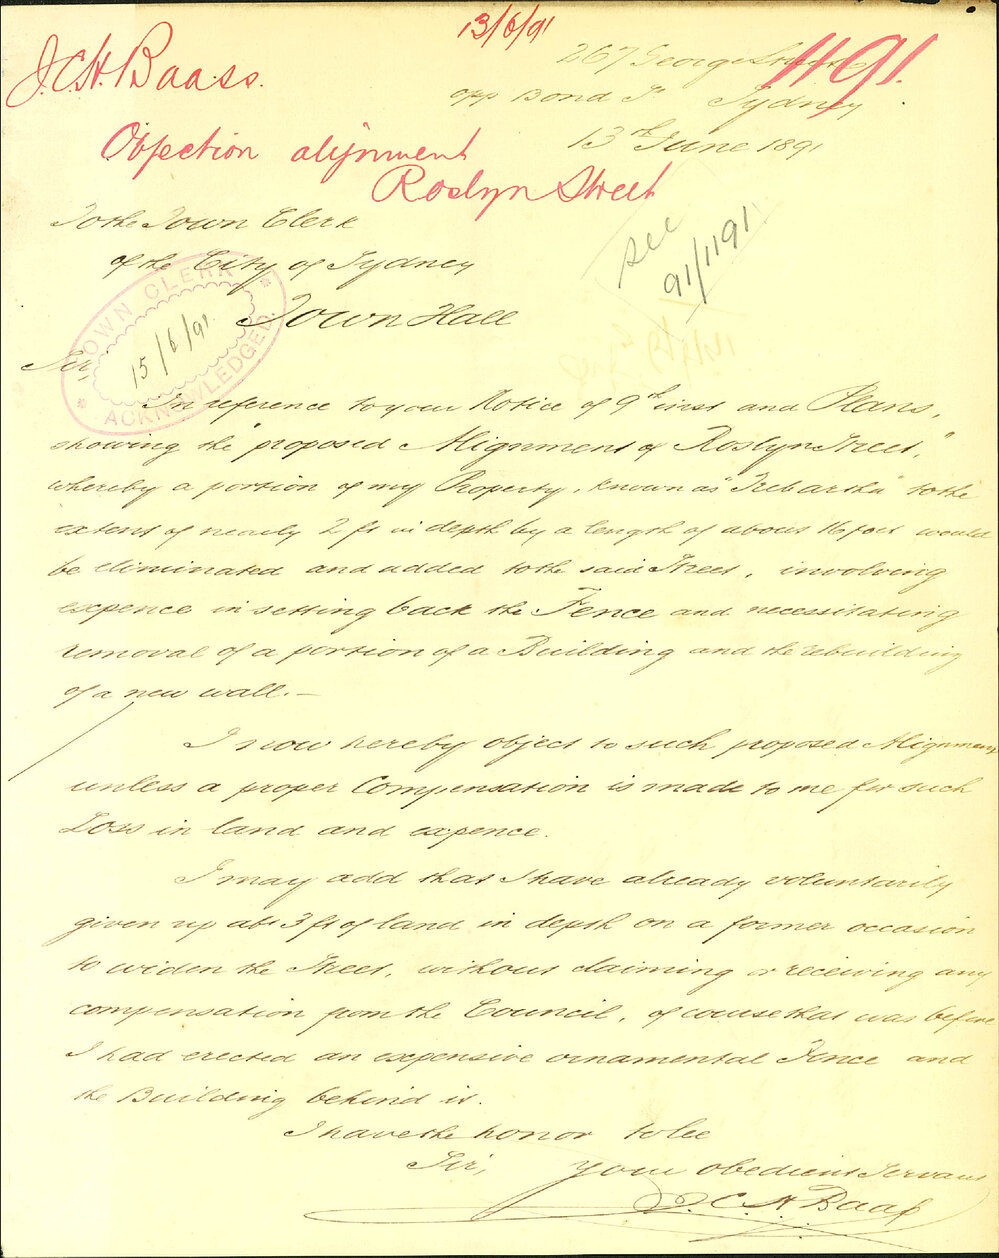 13/6/91
J.C.H. Baass.
1191.
267 George Street
opp Bond St Sydney
13th June 1891
Objection alignment
Roslyn Street
To the Town Clerk
of the City of Sydney
Town Hall
see
91/1191
TOWN CLERK
15/6/91
ACKNOWLEDGED.
Sir,
In reference to your Notice of 9th inst and Plans,
showing the "proposed Alignment of Roslyn Street,"
whereby a portion of my Property, known as "Trebartha" to the
extent of nearly 2 ft in depth by a length of about 16 feet would
be eliminated and added to the said Street, involving
expence in setting back the Fence and necessitating
removal of a portion of a Building and the rebuilding
of a new wall.—
I now hereby object to such proposed Alignment
unless a proper Compensation is made to me for such
Loss in land and expence.
I may add that I have already voluntarily
given up abt 3 ft of land in depth on a former occasion
to widen the Street, without claiming or receiving any
compensation from the Council, of course that was before
I had erected an expensive ornamental Fence and
the Building behind it.
I have the honor to be
Sir, your obedient Servant
J. C. H. Baass